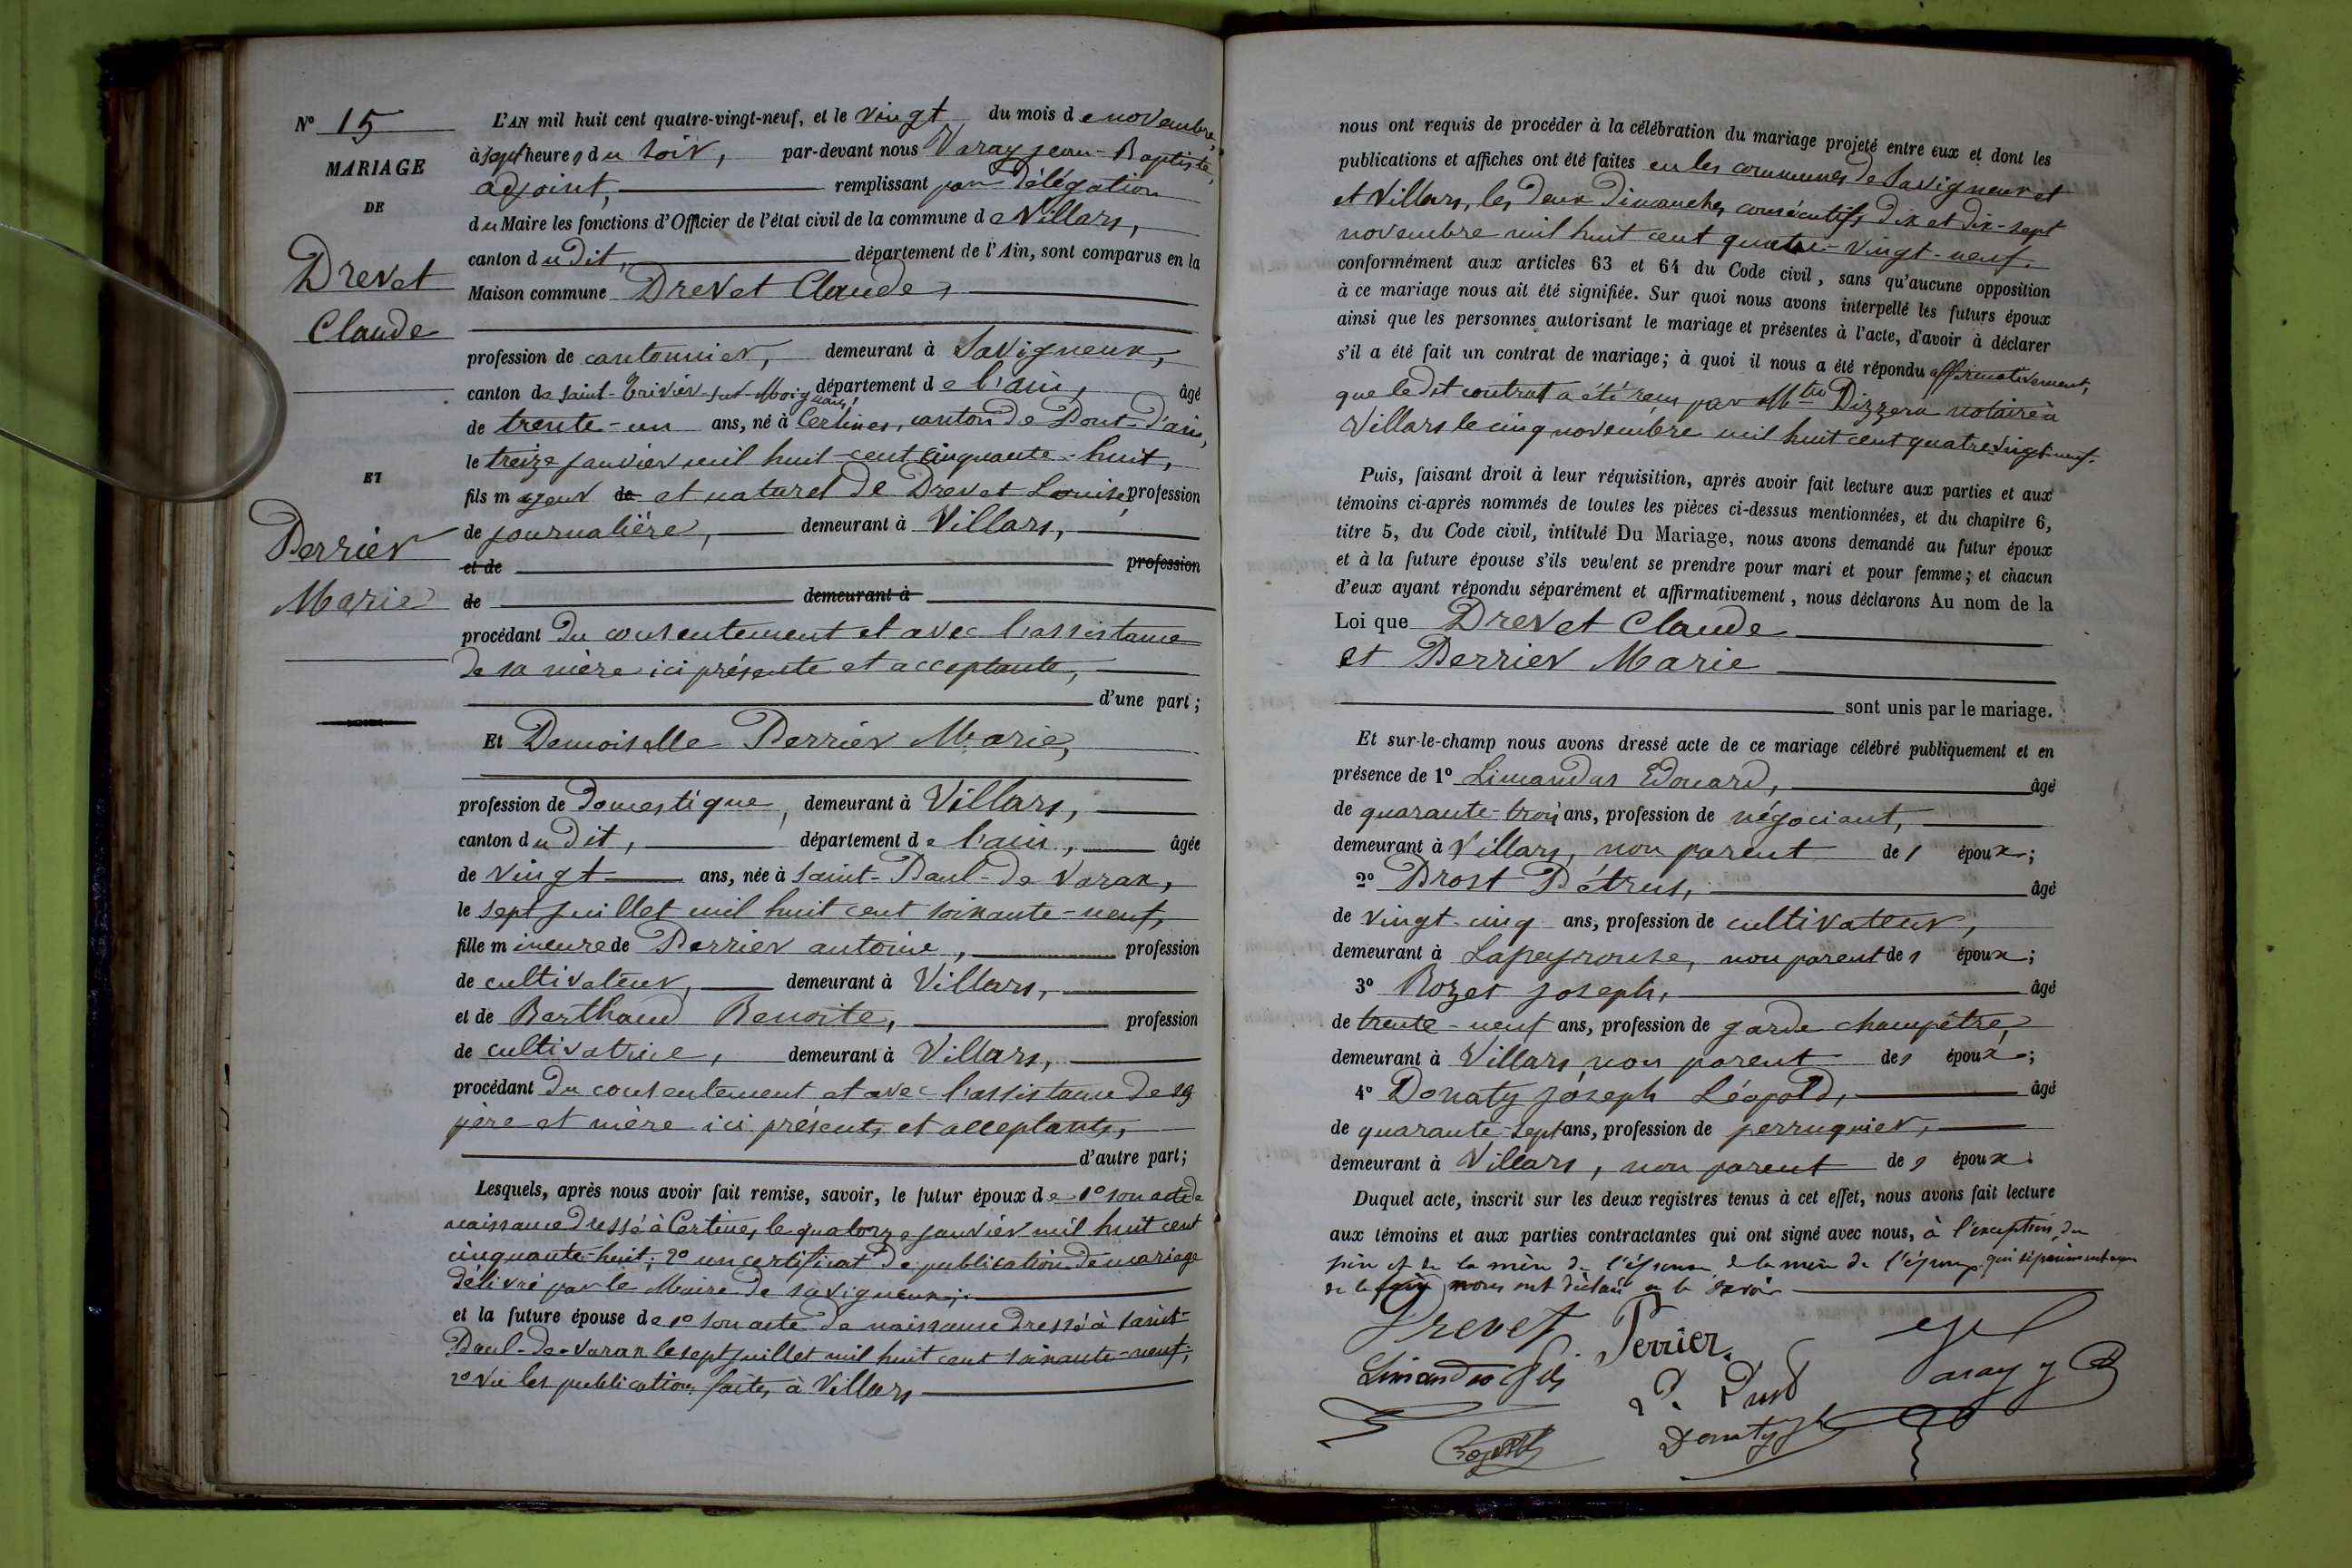 N° 15
MARIAGE
DE
Drevet
Claude
ET
Perrier
Marie
L'AN mil huit cent quatre-vingt-neuf, et le vingt du mois de novembre,
à sept heures du soir, par-devant nous Varay jean-Baptiste,
adjoint, remplissant par délégation
du Maire les fonctions d'Officier de l'état civil de la commune de Villars,
canton du dit, département de l'Ain, sont comparus en la
Maison commune Drevet Claude,
profession de cantonnier, demeurant à Savigneux,
canton de saint-Trivier-sur-Moignans, département de l'ain, âgé
de trente-un ans, né à Certines, canton de Pont-d'ain,
le treize janvier mil huit-cent cinquante-huit,
fils majeur de et naturel de Drevet Louise, profession
de journalière, demeurant à Villars,
et de profession
de demeurant à
procédant du consentement et avec l'assistance
de sa mère ici présente et acceptante,
d'une part;
Et Demoiselle Perrier Marie,
profession de domestique, demeurant à Villars,
canton du dit, département de l'ain, âgée
de vingt ans, née à saint-Paul-de Varax,
le sept juillet mil huit cent soixante-neuf,
fille mineure de Perrier antoine, profession
de cultivateur, demeurant à Villars,
et de Berthaud Benoite, profession
de cultivatrice, demeurant à Villars,
procédant du consentement et avec l'assistance de ses
père et mère ici présents et acceptants,
d'autre part;
Lesquels, après nous avoir fait remise, savoir, le futur époux de 1° son acte de
naissance dressé à Certines, le quatorze janvier mil huit cent
cinquante-huit; 2° un certificat de publication de mariage
délivré par le Maire de savigneux;
et la future épouse de 1° son acte de naissance dressé à saint-
Paul-de-Varax le sept juillet mil huit cent soixante-neuf;
2° vu les publications faites à Villars
nous ont requis de procéder à la célébration du mariage projeté entre eux et dont les
publications et affiches ont été faites en les communes de Savigneux et
et Villars, les deux dimanches consécutifs dix et dix-sept
novembre mil huit cent quatre-vingt-neuf.
conformément aux articles 63 et 64 du Code civil, sans qu'aucune opposition
à ce mariage nous ait été signifiée. Sur quoi nous avons interpellé les futurs époux
ainsi que les personnes autorisant le mariage et présentes à l'acte, d'avoir à déclarer
s'il a été fait un contrat de mariage; à quoi il nous a été répondu affirmativement,
que le dit contrat a été reçu par Mtre Dizzera notaire à
Villars le cinq novembre mil huit cent quatre vingt-neuf.
Puis, faisant droit à leur réquisition, après avoir fait lecture aux parties et aux
témoins ci-après nommés de toutes les pièces ci-dessus mentionnées, et du chapitre 6,
titre 5, du Code civil, intitulé Du Mariage, nous avons demandé au futur époux
et à la future épouse s'ils veulent se prendre pour mari et pour femme; et chacun
d'eux ayant répondu séparément et affirmativement, nous déclarons Au nom de la
Loi que Drevet Claude
et Perrier Marie
sont unis par le mariage.
Et sur-le-champ nous avons dressé acte de ce mariage célébré publiquement et en
présence de 1° Limandas Edouard, âgé
de quarante-trois ans, profession de négociant,
demeurant à Villars, non parent des époux;
2° Prost Pétrus, âgé
de vingt-cinq ans, profession de cultivateur,
demeurant à Lapeyrouse, non parent des époux;
3° Rozet joseph, âgé
de trente-neuf ans, profession de garde champêtre,
demeurant à Villars, non parent des époux;
4° Donaty joseph Léopold, âgé
de quarante-sept ans, profession de perruquier,
demeurant à Villars, non parent des époux.
Duquel acte, inscrit sur les deux registres tenus à cet effet, nous avons fait lecture
aux témoins et aux parties contractantes qui ont signé avec nous, à l'exception du
père et de la mère de l'épouse, de la mère de l'époux qui séparément requis
de le faire nous ont déclaré ne le savoir
Drevet Perrier
Limandas fils P. Prost Varay J B
Rozet Donaty